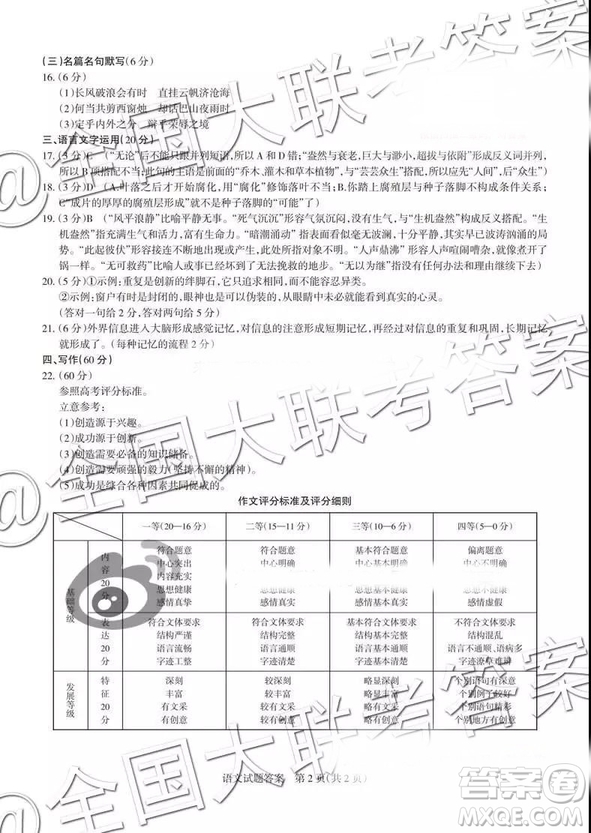 (三)名篇名句默写(6分)
16.(6分)
(1)长风破浪会有时 直挂云帆济沧海
(2)何当共剪西窗烛 却话巴山夜雨时
(3)定乎内外之分 辩乎荣辱之境
三、语言文字运用(20分)
17.(3分)C (“无论”后不能只跟并列短语,所以A和D错;“盎然与衰老,巨大与渺小,超拔与依附”形成反义词并列,
所以B项搭配不当;此句的主语是前面的“乔木、灌木和草本植物”,与“芸芸众生”搭配,所以选“众生”)
18.(3分)A (叶落之后才开始腐化,用“腐化”修饰落叶不当;B“你踏上腐殖层与种子落脚”不构成条件关系;
C“成片的厚厚的腐殖层”“让种子落脚”成分残缺)
19.(3分)B (“风平浪静”比喻平静无事。“死气沉沉”形容气氛沉闷,没有生气,与“生机盎然”构成反义搭配。“生
机盎然”指充满生气和活力,富有生命力。“暗潮涌动”指表面看似毫无波澜,十分平静,其实早已波涛汹涌的局
势。“此起彼伏”形容接连不断地出现或提高,所指对象不明。“人声鼎沸”形容人声喧闹嘈杂,就像煮开了
锅一样。“无可救药”比喻人或事物已经坏到无法挽救的地步,而不是没有理由或途径继续下去)
20.(5分)①示例:重复是创新的绊脚石,它只代表着过去,而不是未来。
②示例:窗户有时是封闭的,眼神也是可以伪装的,从眼睛未必能真正透视心灵。
(答对一句给2分,答对两句给5分)
21.(6分)外界信息进入大脑形成感觉记忆,对信息的注意形成短期记忆,再由对信息的重复和巩固,长期记忆
就形成了。(每种记忆的流程2分)
四、写作(60分)
22.(60分)
参照高考评分标准。
立意参考:
(1)创造源于兴趣。
(2)成功源于创新。
(3)创造需要必备的知识储备。
(4)创造需要顽强的毅力(坚持不懈的精神)。
(5)成功是综合各种因素共同促成的。
作文评分标准及评分细则
一等(20—16分) 二等(15—11分) 三等(10—6分) 四等(5—0分)
基础等级
内容20分
符合题意 符合题意 基本符合题意 偏离题意
中心突出 中心明确 中心基本明确 中心不明确
内容充实
思想健康 思想健康 思想基本健康 思想不健康
感情真挚 感情真实 感情基本真实 感情虚假
表达20分
符合文体要求 符合文体要求 基本符合文体要求 不符合文体要求
结构严谨 结构完整 结构基本完整 结构混乱
语言流畅 语言通顺 语言基本通顺 语言不通顺,语病多
字迹工整 字迹清楚 字迹基本清楚 字迹潦草难辨
发展等级
特征20分
深刻 较深刻 略显深刻 个别语句有深意
丰富 较丰富 略显丰富 个别例子较好
有文采 较有文采 略有文采 个别语句精彩
有创意 较有创意 略有创意 个别地方有创意
语文试题答案 第2页(共2页)
全国大联考答案
答案圈
MXQE.COM